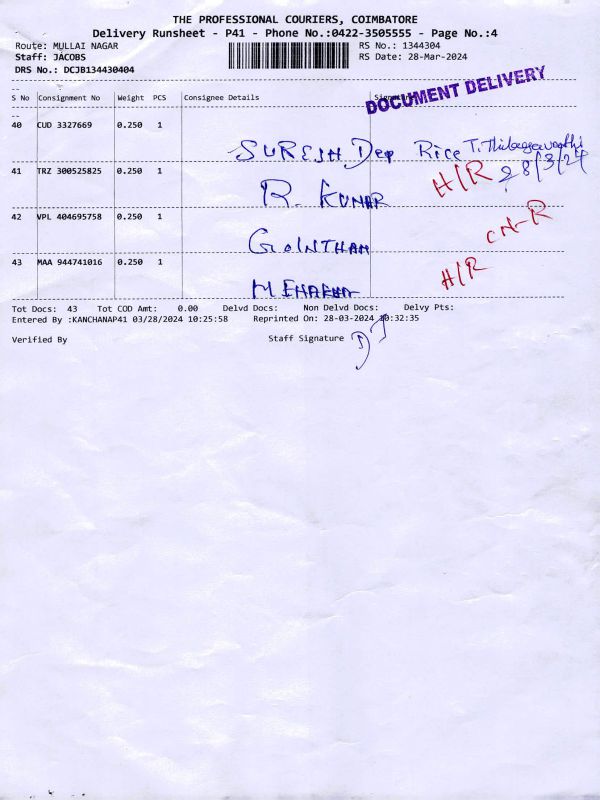 THE PROFESSIONAL COURIERS, COIMBATORE
Delivery Runsheet - P41 - Phone No.:0422-3505555 - Page No.:4
Route: MULLAI NAGAR RS No.: 1344304
Staff: JACOBS RS Date: 28-Mar-2024
DRS No.: DCJB134430404
DOCUMENT DELIVERY
S No Consignment No Weight PCS Consignee Details Signature
40 CUD 3327669 0.250 1
SURESH Dep Rice T. Thilagavathi
41 TRZ 300525825 0.250 1 H/R 28/3/24
R. KUMAR
42 VPL 404695758 0.250 1 CN-R
GOWTHAM
43 MAA 944741016 0.250 1 H/R
MENAKA
Tot Docs: 43 Tot COD Amt: 0.00 Delvd Docs: Non Delvd Docs: Delvy Pts:
Entered By :KANCHANAP41 03/28/2024 10:25:58 Reprinted On: 28-03-2024 10:32:35
Verified By Staff Signature